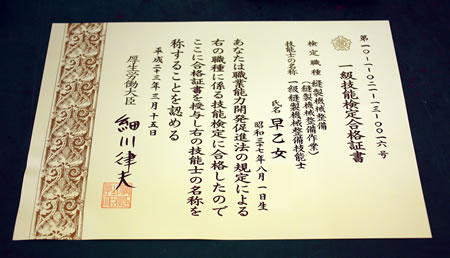 第一〇-一-〇二一-一三-〇〇一六号
一級技能検定合格証書
検定職種 縫製機械整備
(縫製機械整備作業)
技能士の名称 一級縫製機械整備技能士
氏名 早乙女
昭和三十七年八月一日生
あなたは職業能力開発促進法の規定による
右の職種に係る技能検定に合格したので
ここに合格証書を授与し右の技能士の名称を
称することを認める
平成二十三年三月十五日
厚生労働大臣 細川律夫